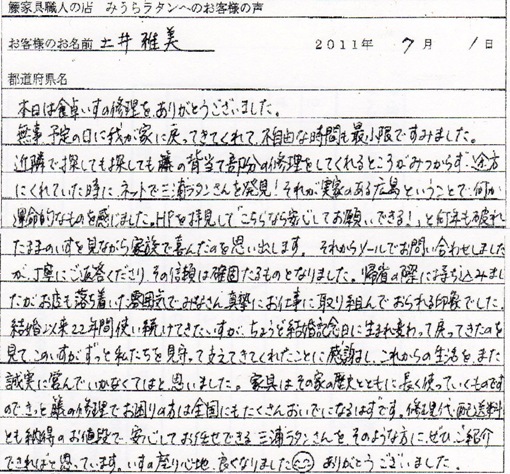 籐家具職人の店 みうらラタンへのお客様の声
お客様のお名前 土井 雅美 2011年 7月 1日
都道府県名
本日は食卓いすの修理を、ありがとうございました。
無事、予定の日に我が家に戻ってきてくれて、不自由な時間も最小限ですみました。
近隣で探しても探しても籐の背当て部分の修理をしてくれるところがみつからず、途方
にくれていた時に、ネットで三浦ラタンさんを発見!それが実家のある広島ということで、何か
運命的なものを感じました。HPを拝見して「こちらなら安心してお願いできる!」と何年も破れ
たままのいすを見ながら家族で喜んだのを思い出します。それからメールでお問い合わせしました
が、丁寧にご返答くださり、その信頼は確固たるものとなりました。帰省の際に持ち込みまし
たが、お店も落ち着いた雰囲気で、みなさん、真摯にお仕事に取り組んでおられる印象でした。
結婚以来22年間使い続けてきたいすが、ちょうど結婚記念日に生まれ変わって戻ってきたのを
見て、このいすがずっと私たちを見守って支えてきてくれたことに感謝し、これからの生活を、また
誠実に営んでいかなくてはと思いました。家具はその家の歴史とともに長く使っていくものです
ので、きっと籐の修理でお困りの方は全国にもたくさんおいでになるはずです。修理代、配送料
とも納得のお値段で、安心してお任せできる三浦ラタンさんを、そのような方に、ぜひ、ご紹介
できればと思っています。いすの座り心地、良くなりました ありがとうございました。